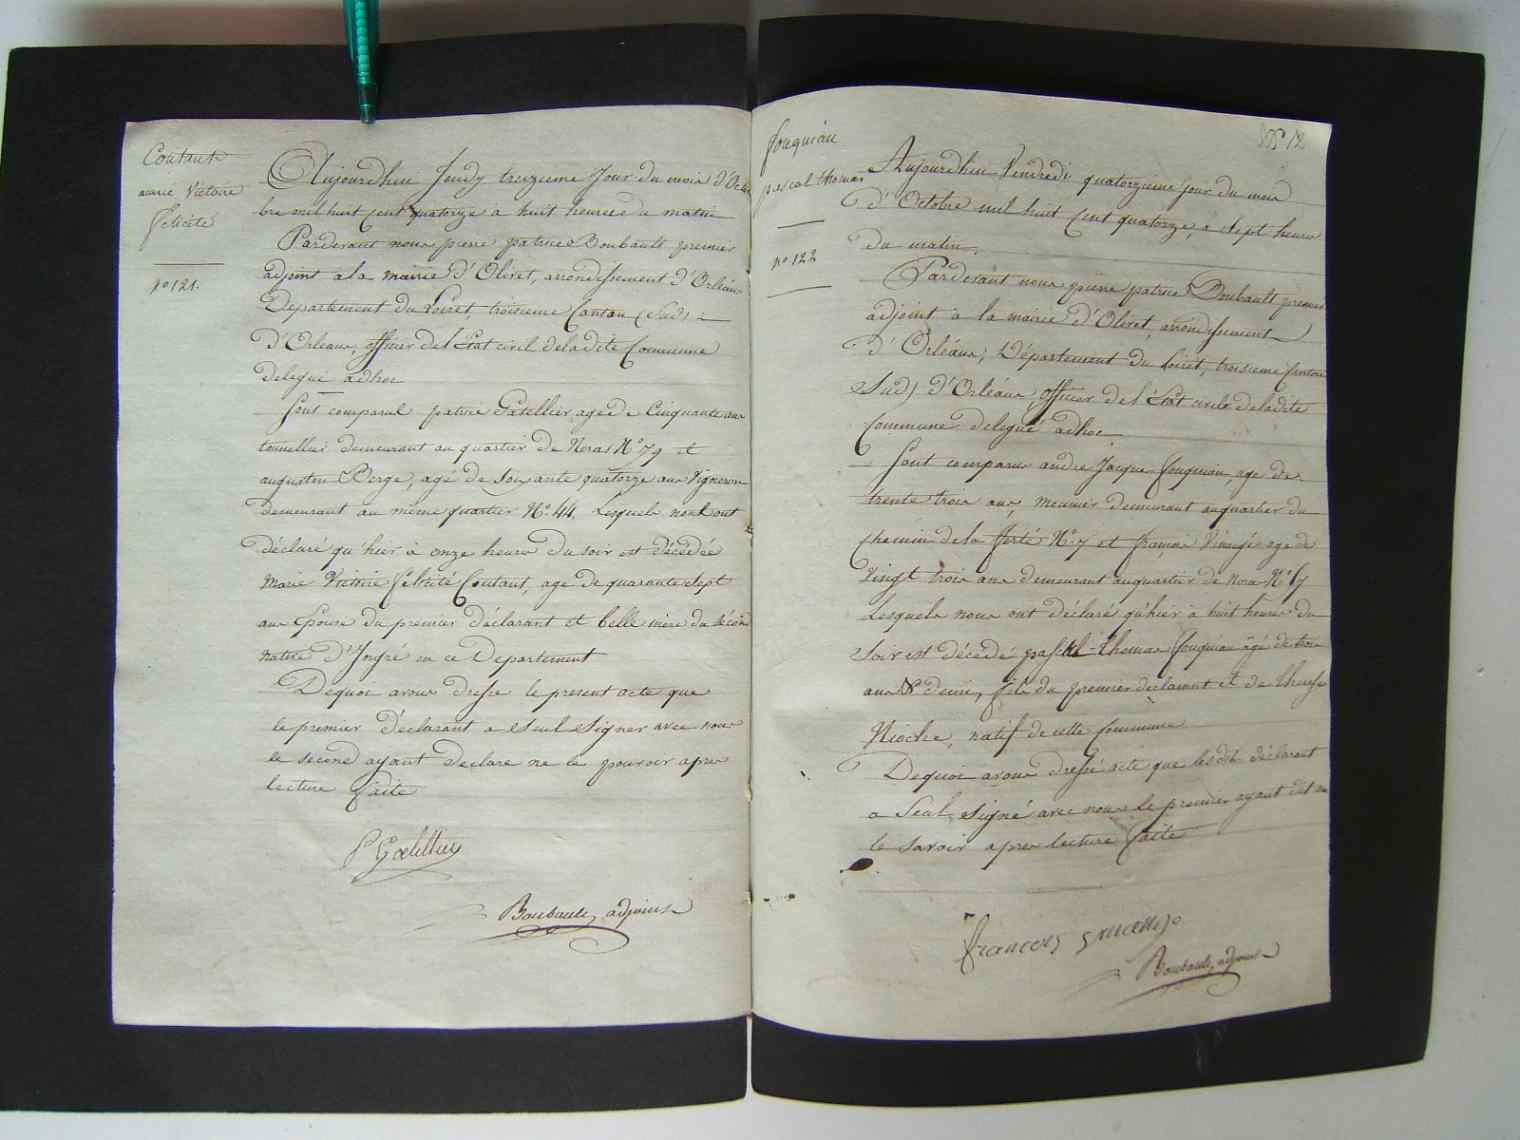 Coutant
marie Victoire
Félicité
No 121.
Aujourdhui Jeudy treizieme Jour du mois d'Octo
bre mil huit Cent quatorze a huit heures du matin
Pardevant nous pierre patrice Boubault premier
adjoint a la mairie d'Olivet, arrondissement d'Orléans
Département du Loiret, troisieme Canton (Sud)
D'Orléans, officier de l'Etat civil de ladite Commune
délégué adhoc
Sont comparus patrice Gatellier agé de Cinquante ans
tonnellier demeurant au quartier de Noras No 79 et
augustin Berge, agé de Soixante quatorze ans Vigneron
demeurant au même quartier No. 44. Lesquels nous ont
déclaré qu'hier à onze heures du soir est décédée
marie Victoire Félicité Coutant, age de quarante Sept
ans Epouse du premier déclarant et belle mère du second
native d'Ingré en ce Departement
Dequoi avons dressé le present acte que
le premier Déclarant a Seul Signer avec nous
le second ayant Declaré ne le pouvoir apres
lecture faite
P Gatellier
Boubault adjoint
fouqueau
pascal thomas
No 122
12
Aujourdhui Vendredi quatorzieme jour du mois
D'Octobre mil huit Cent quatorze, a Sept heures
du matin,
Pardevant nous pierre patrice Boubault premier
adjoint à la mairie d'Olivet, arrondissement
d'Orléans, Département du Loiret, troisieme Canton
(Sud) d'Orléans, officier de l'Etat civile de ladite
Commune delegué adhoc
Sont comparus andré Jacques fouqueau, agé de
trente trois ans, meunier demeurant auquartier du
chemin de la ferté No. 7 et francois agé de
Vingt trois ans demeurant auquartier de Noras No 67
Lesquels nous ont déclaré qu'hier à huit heures du
Soir est décédé paskal thomas fouqueau âgé de trois
ans & demie, fils du premier déclarant et de therese
Nioche, natif de cette Commune
Dequoi avons dressé acte que lesdit déclarant
a Seul Signé avec nous le premier ayant dit ne
le Savoir apres lecture faite
francois
Boubault adjoint